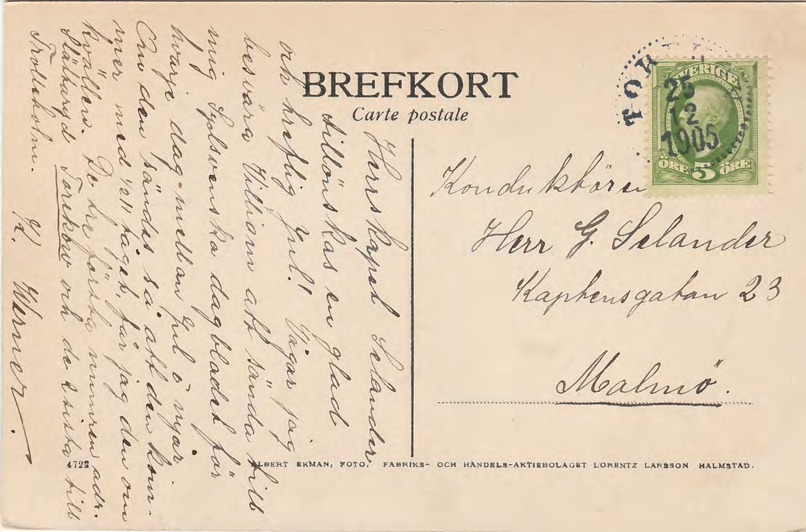 BREFKORT
Carte postale
TOR
25
2
1905
SVERIGE
ÖRE 5 ÖRE
Konduktören
Herr G. Selander
Kaptensgatan 23
Malmö.
Herrskapet Selander
tillönskas en glad
och treflig Jul! Vågar jag
besvära Vilhelm att sända till
mig Sydsvenska dagbladet för
hvarje dag mellan Jul o nyår.
Om den sändes så att den kom-
mer med 1/2 11 taget, får jag den om
kvällen. De tre första numren adr.
Slättaryd Torekow och de sista till
Trolleholm.
Werner.
4722
ALBERT EKMAN, FOTO, FABRIKS- OCH HANDELS-AKTIEBOLAGET LORENTZ LARSSON HALMSTAD.